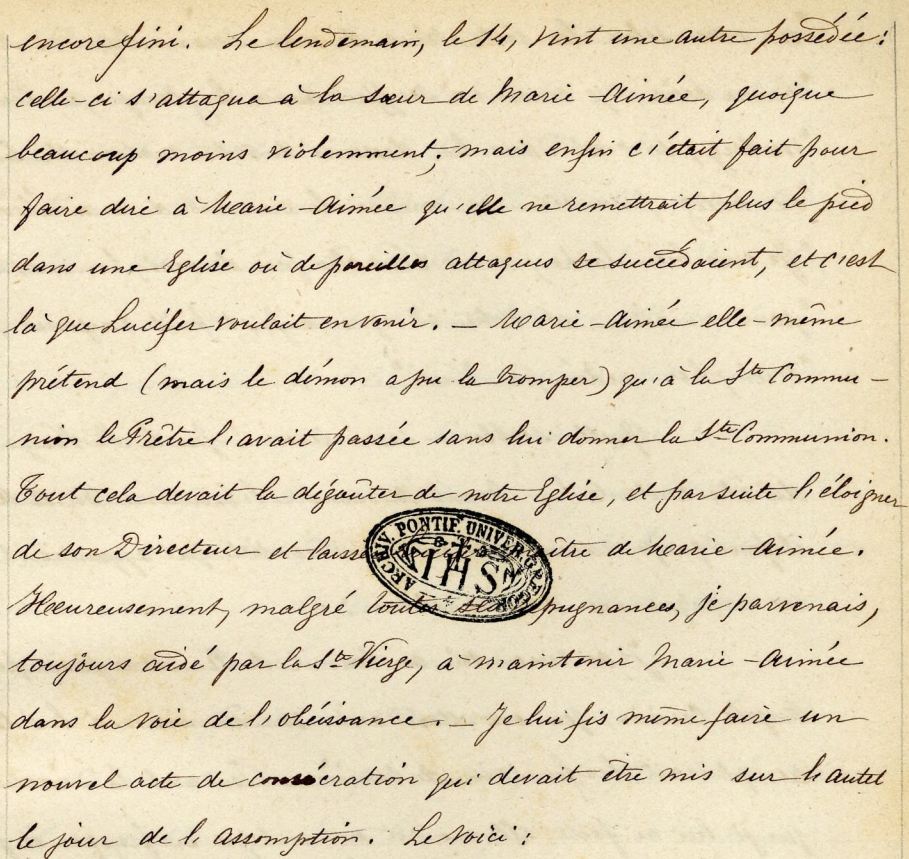 encore fini. Le lendemain, le 14, vint une autre possédée:
celle-ci s'attaqua à la sœur de Marie-Aimée, quoique
beaucoup moins violemment; mais enfin c'était fait pour
faire dire à Marie-Aimée qu'elle ne remettrait plus le pied
dans une Eglise où de pareilles attaques se succédaient, et c'est
là que Lucifer voulait en venir. _ Marie-Aimée elle-même
prétend (mais le démon a pu la tromper) qu'à la Ste Commu-
nion le Prêtre l'avait passée sans lui donner la Ste Communion.
Tout cela devait la dégoûter de notre Eglise, et par suite l'éloigner
de son Directeur et laisse ître de Marie-Aimée.
Heureusement, malgré toutes pugnances, je parvenais,
toujours aidé par la Ste Vierge, à maintenir Marie-Aimée
dans la voie de l'obéissance. _ Je lui fis même faire un
nouvel acte de consécration qui devait être mis sur l'autel
le jour de l'Assomption. Le voici:
ARCHIV. PONTIF. UNIVER. GREGOR.
IHS